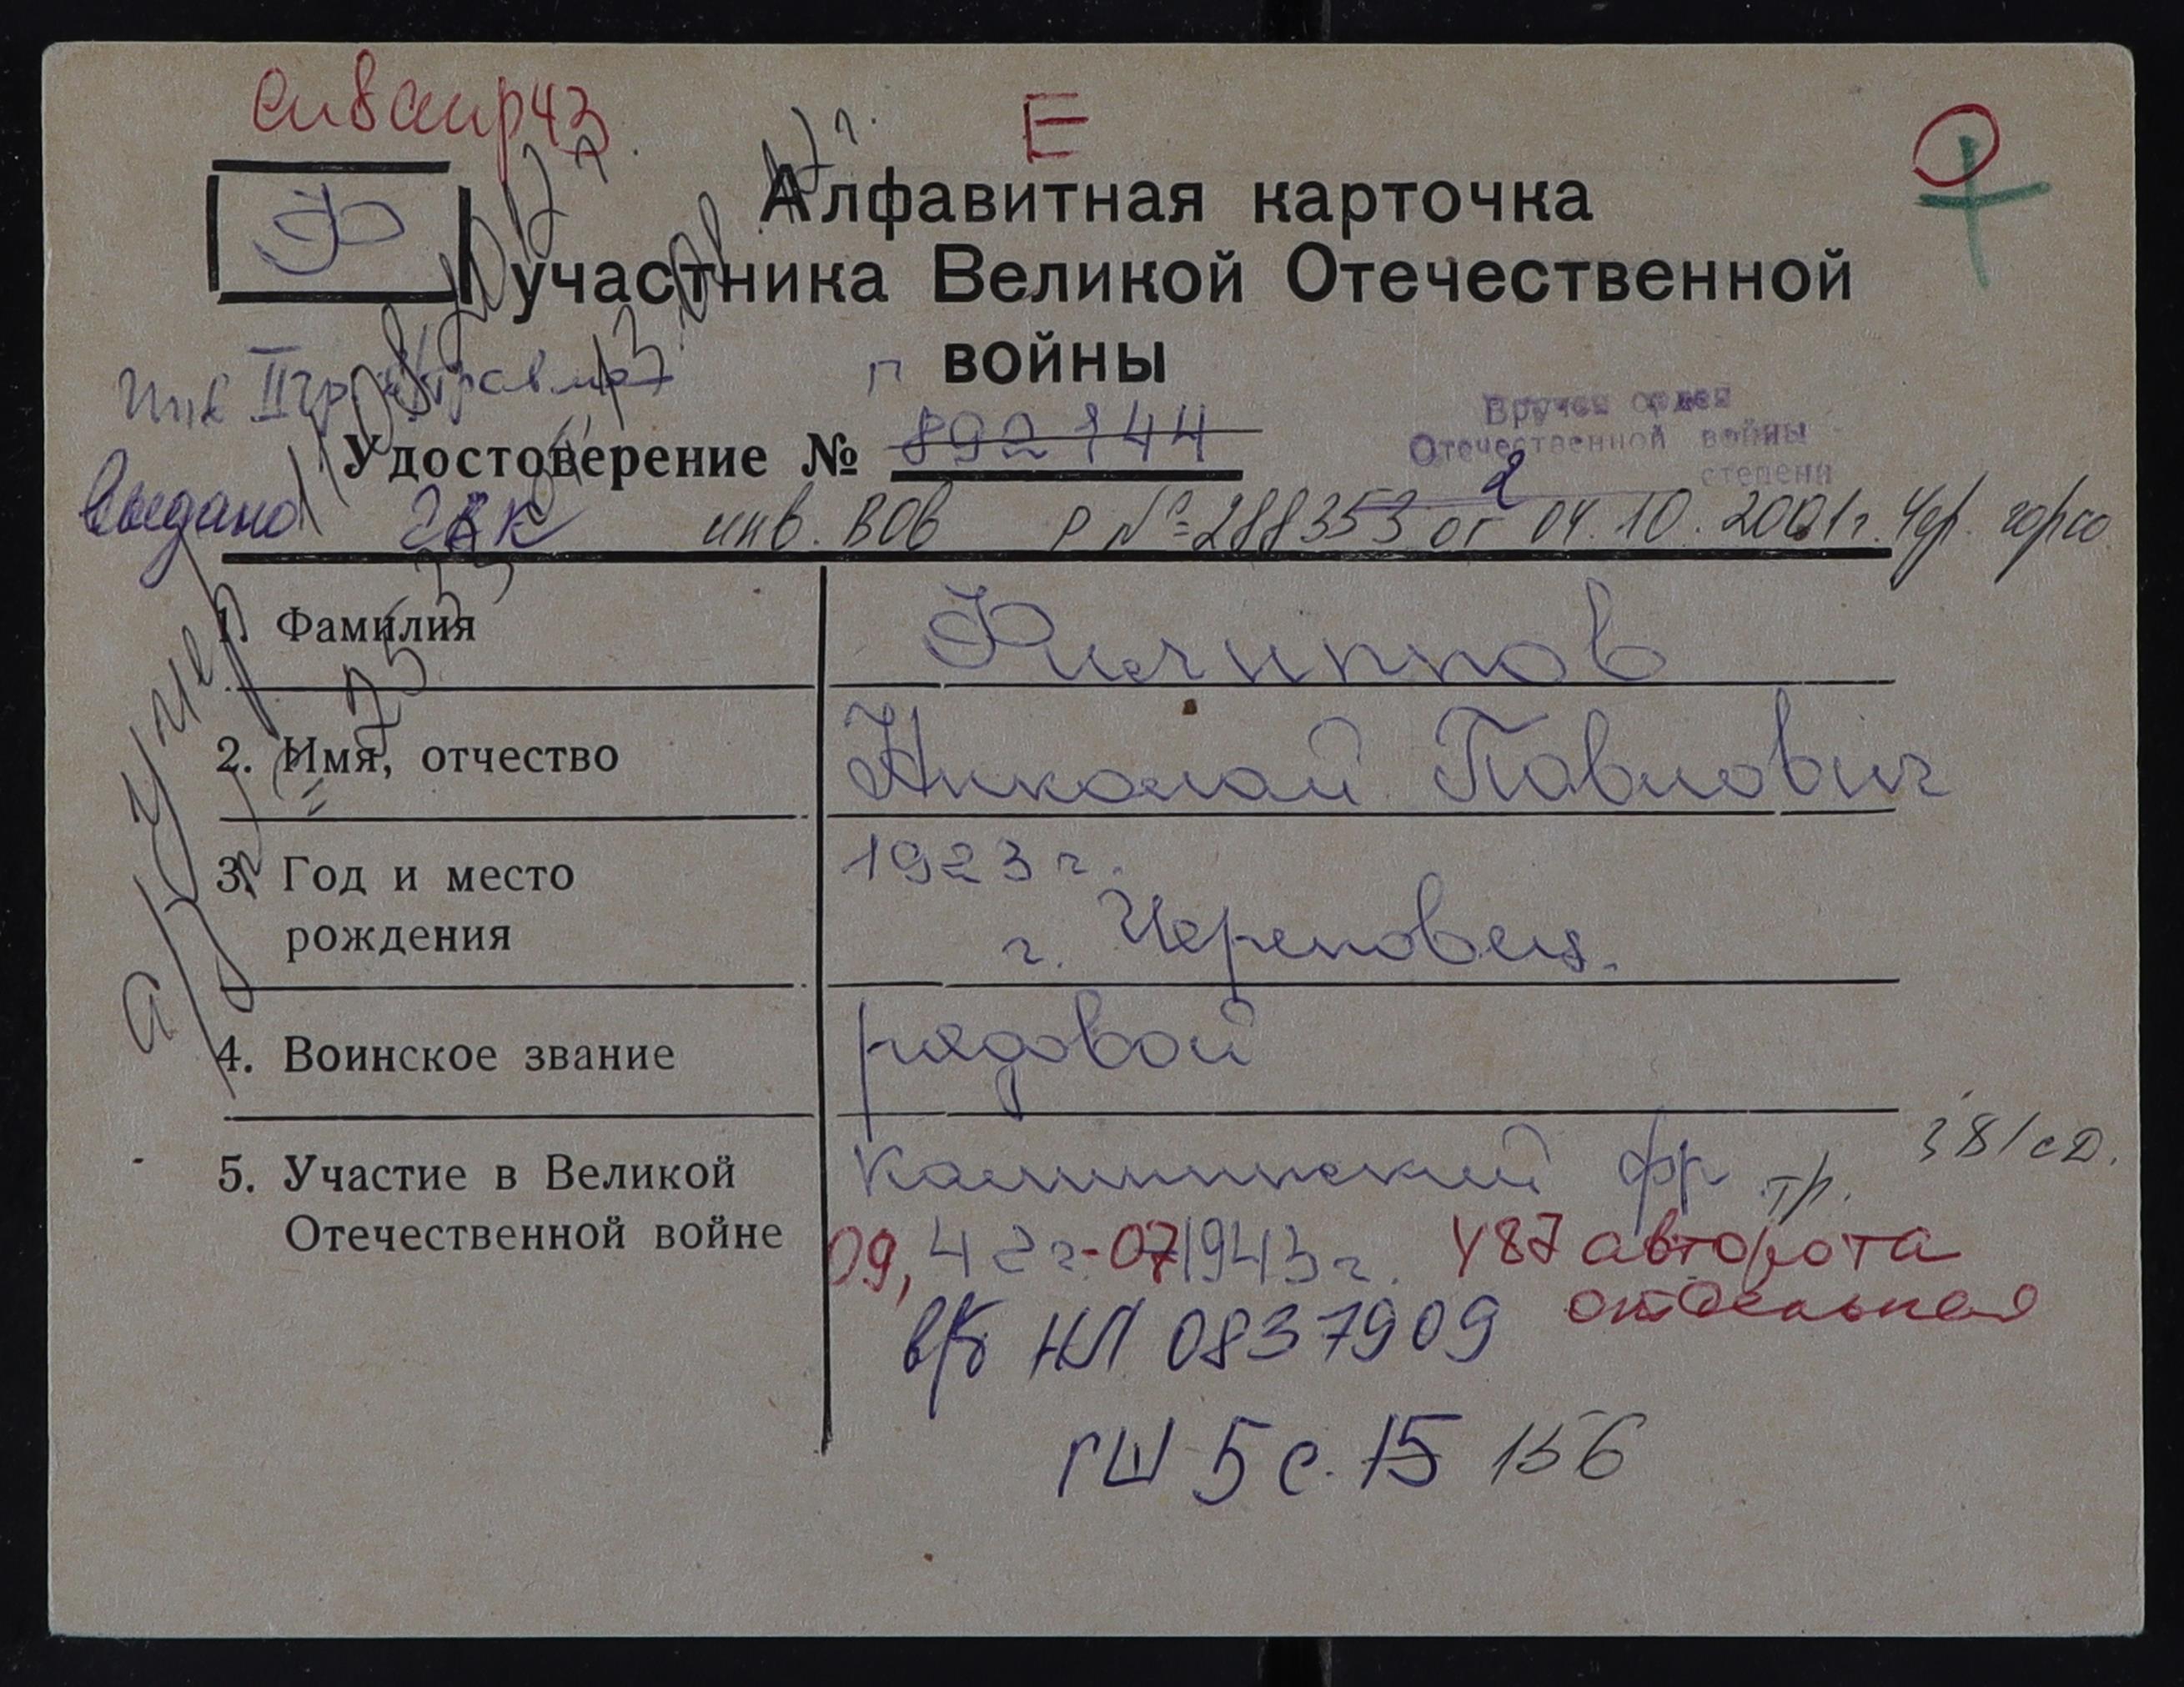 Е
Ф
Алфавитная карточка
участника Великой Отечественной
войны
инв II гр
Удостоверение № 892144
Вручен орден
Отечественной войны
2 степени
выдано инв. ВОВ Р №=288353 от 04.10.2001г. Чер. горсо
умер
1. Фамилия Филиппов
2. Имя, отчество Николай Павлович
3. Год и место
рождения
1923 г.
г. Череповец.
4. Воинское звание рядовой
5. Участие в Великой
Отечественной войне
Калининский фр тр. 381 сд.
09, 42г.-07 1943г. 487 авторота
отдельная
в/б НЛ 0837909
ГШ 5 с. 15 156